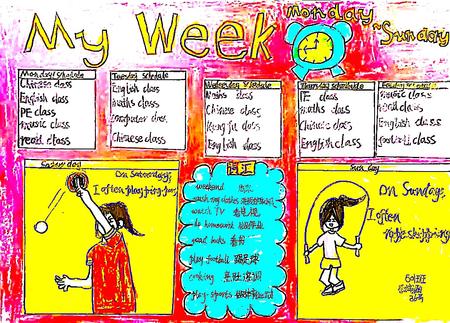 My Week
Monday
~Sunday
Monday schedule
Chinese class
English class
PE class
music class
read class
Tuesday schedule
English class
maths class
computer class
Chinese class
Wednesday schedule
Maths class
Chinese class
kung fu class
English class
Thursday schedule
PE class
maths class
Chinese class
English class
music class
read class
English class
football class
On Saturdays,
I often play ping-pong
词汇
weekend 周末
wash my clothes
watch TV 看电视
do homework 做作业
read books 看书
play football 踢足球
cooking
play sports
Sunday
On Sundays,
I often
rope skipping